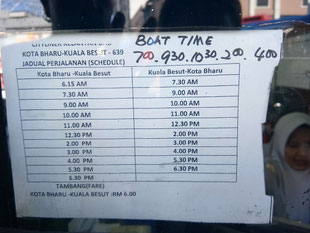 CITYLINER KELANTAN BHD
KOTA BHARU-KUALA BESUT - 639
JADUAL PERJALANAN (SCHEDULE)
BOAT TIME
7.00. 9.30. 10.30. 2.00. 4.00
Kota Bharu -Kuala Besut Kuala Besut-Kota Bharu
6.15 AM 7.30 AM
7.30 AM 9.00 AM
9.00 AM 10.00 AM
10.00 AM 11.00 AM
11.00 AM 12.30 PM
12.30 PM 2.00 PM
2.00 PM 3.00 PM
3.00 PM 4.00 PM
4.00 PM 5.30 PM
5.30 PM 6.30 PM
6.30 PM
TAMBANG(FARE)
KOTA BHARU -KUALA BESUT :RM 6.00